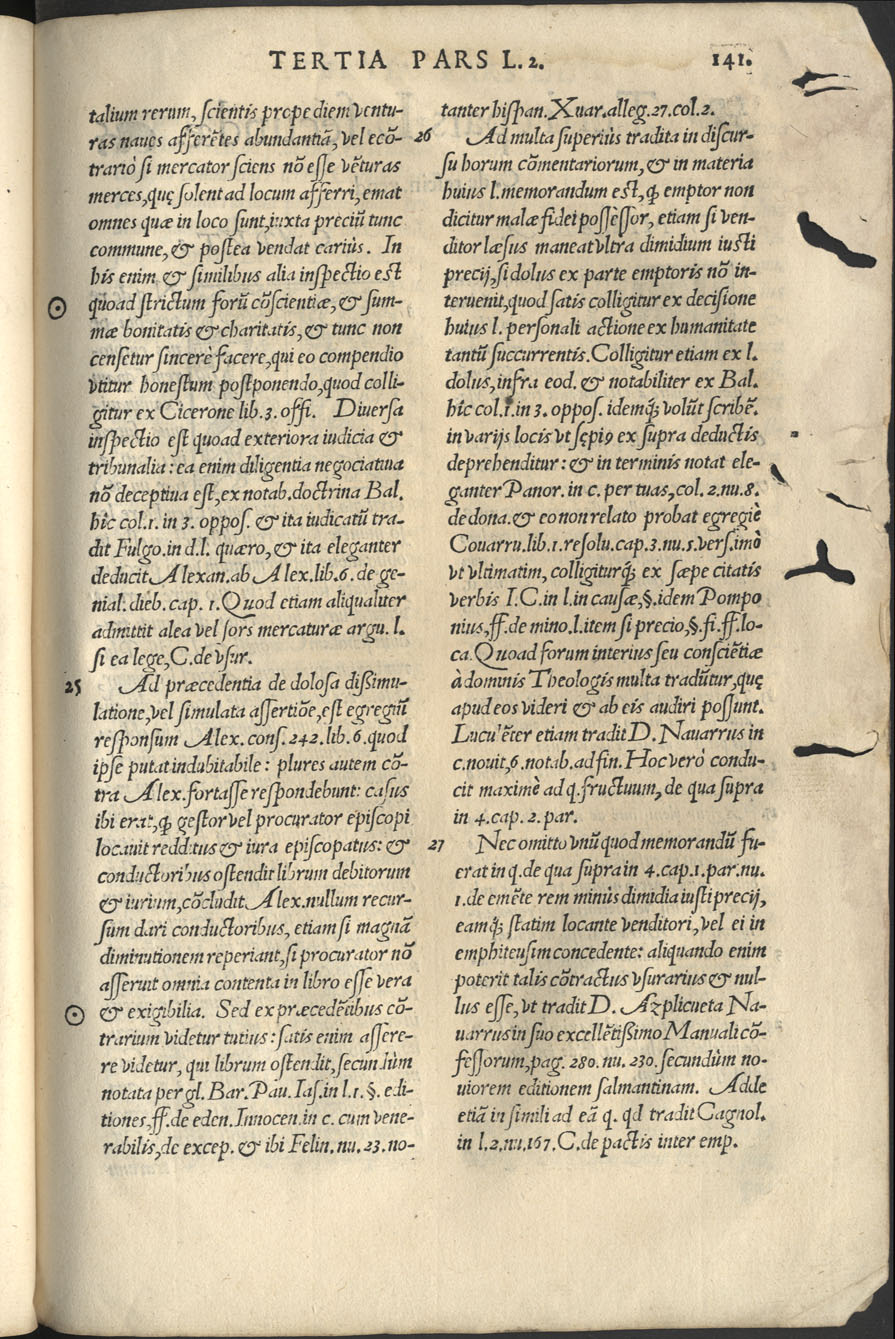 TERTIA PARS L.2. 141.
talium rerum, scientis prope diem ventu-
ras naues afferẽtes abundantiã, vel ecõ-
trariò si mercator sciens nõ esse vẽturas
merces, quę solent ad locum afferri, emat
omnes quæ in loco sunt, iuxta preciũ tunc
commune, & postea vendat cariùs. In
his enim & similibus alia inspectio est
quoad strictum forũ cõscientiæ, & sum-
mæ bonitatis & charitatis, & tunc non
censetur sincerè facere, qui eo compendio
vtitur honestum postponendo, quod colli-
gitur ex Cicerone lib.3. offi. Diuersa
inspectio est quoad exteriora iudicia &
tribunalia: ea enim diligentia negociatiua
nõ deceptiua est, ex notab. doctrina Bal.
hîc col.1. in 3. oppos. & ita iudicatũ tra-
dit Fulgo. in d.l. quæro, & ita eleganter
deducit Alexan. ab Alex. lib.6. de ge-
nial. dieb. cap. 1. Quod etiam aliqualiter
admittit alea vel sors mercaturæ argu. l.
si ea lege, C. de vsur.
25 Ad præcedentia de dolosa dißimu-
latione, vel simulata assertiõe, est egregiũ
responsum Alex. cons. 242. lib. 6. quod
ipse putat indubitabile: plures autem cõ-
tra Alex. fortasse respondebunt: casus
ibi erat, ꝙ gestor vel procurator episcopi
locauit redditus & iura episcopatus: &
conductoribus ostendit librum debitorum
& iurium, cõcludit Alex. nullum recur-
sum dari conductoribus, etiam si magnã
diminutionem reperiant, si procurator nõ
asseruit omnia contenta in libro esse vera
& exigibilia. Sed ex præcedẽtibus cõ-
trarium videtur tutius: satis enim assere-
re videtur, qui librum ostendit, secundùm
notata per gl. Bar. Pau. Ias. in l. 1. §. edi-
tiones, ff. de eden. Innocen. in c. cum vene-
rabilis, de excep. & ibi Felin. nu. 23. no-
tanter hispan. Xuar. alleg. 27. col. 2.
26 Ad multa superiùs tradita in discur-
su horum cõmentariorum, & in materia
huius l. memorandum est, ꝙ emptor non
dicitur malæ fidei possessor, etiam si ven-
ditor læsus maneat vltra dimidium iusti
precij, si dolus ex parte emptoris nõ in-
teruenit, quod satis colligitur ex decisione
huius l. personali actione ex humanitate
tantũ succurrentis. Colligitur etiam ex l.
dolus, infra eod. & notabiliter ex Bal.
hîc col. 1. in 3. oppos. idemq́; volũt scribẽ.
in varijs locis vt sępiꝰ ex supra deductis
deprehenditur: & in terminis notat ele-
ganter Panor. in c. per tuas, col. 2. nu. 8.
de dona. & eo non relato probat egregiè
Couarru. lib. 1. resolu. cap. 3. nu. 5. vers. imò
vt vltimatim, colligiturq́; ex sæpe citatis
verbis I.C. in l. in causæ, §. idem Pompo
nius, ff. de mino. l. item si precio, §. fi. ff. lo-
ca. Quoad forum interius seu consciẽtiæ
à dominis Theologis multa tradũtur, quę
apud eos videri & ab eis audiri possunt.
Luculẽter etiam tradit D. Nauarrus in
c. nouit, 6. notab. ad fin. Hoc verò condu-
cit maximè ad q. fructuum, de qua supra
in 4. cap. 2. par.
27 Nec omitto vnũ quod memorandũ fu-
erat in q. de qua supra in 4. cap. 1. par. nu.
1. de emẽte rem minùs dimidia iusti precij,
eamq́; statim locante venditori, vel ei in
emphiteusim concedente: aliquando enim
poterit talis cõtractus vsurarius & nul-
lus esse, vt tradit D. Azplicueta Na-
uarrus in suo excellẽtißimo Manuali cõ-
fessorum, pag. 280. nu. 230. secundùm no-
uiorem editionem salmantinam. Adde
etiã in simili ad eã q. qd tradit Cagnol.
in l. 2. nu. 167. C. de pactis inter emp.